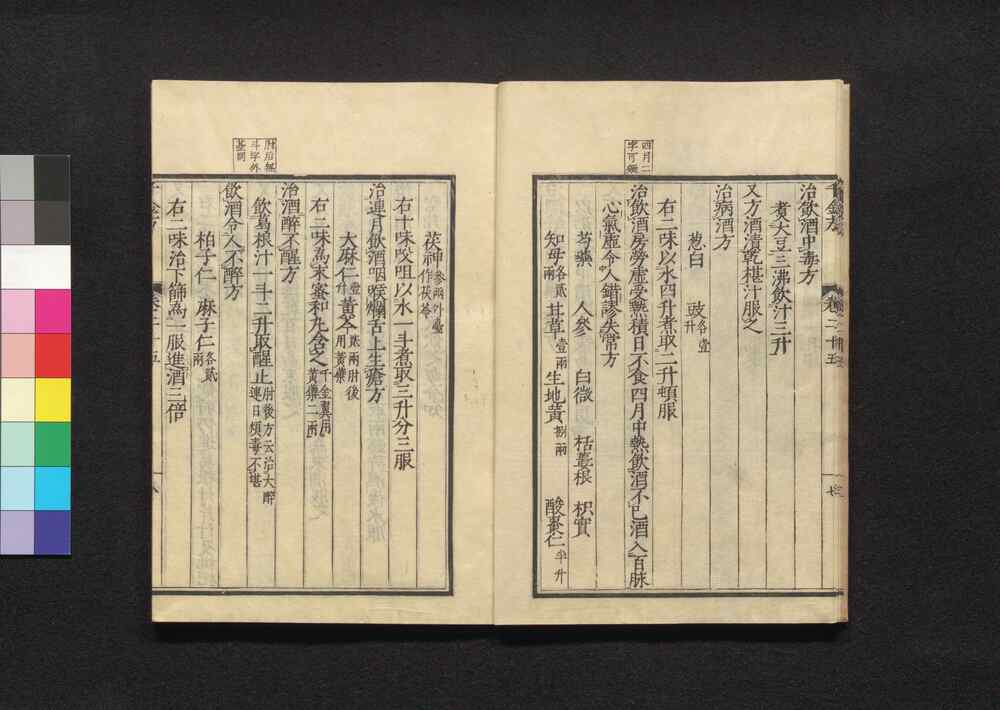 治飲酒中毒方
煮大豆三沸飲汁三升
又方酒漬乾椹汁服之
治病酒方
葱白 豉各壹升
右二味以水四升煮取二升頓服
治飲酒房勞虛受熱積日不食四月中熱飲酒不已酒入百脉
心氣虛令人錯謬失常方
芍藥 人參 白薇 栝蔞根 枳實
知母各貳兩 甘草壹兩 生地黃捌兩 酸棗仁半升
茯神參兩外臺作茯苓
右十味㕮咀以水一斗煮取三升分三服
治連月飲酒咽喉爛舌上生瘡方
大麻仁壹升 黃芩貳兩肘後用黃蘗
右二味為末蜜和丸含之千金翼用黃蘗二兩
治酒醉不醒方
飲葛根汁一斗二升取醒止肘後方云治大醉連日煩毒不堪
飲酒令人不醉方
柏子仁 麻子仁各貳兩
右二味治下篩為一服進酒三倍